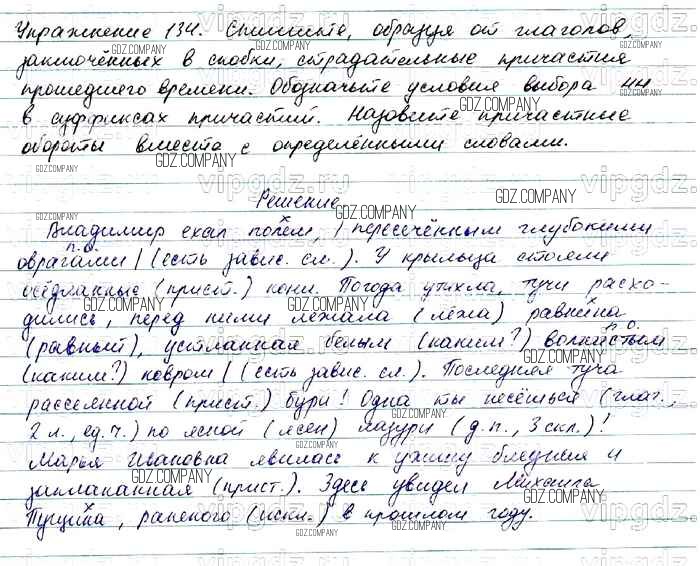 Упражнение 134. Спишите, образуя от глаголов,
заключённых в скобки, страдательные причастия
прошедшего времени. Обозначьте условия выбора НН
в суффиксах причастий. Назовите причастные
обороты вместе с определёнными словами.
Решение
Владимир ехал полем, | пересечённым глубокими
п.о.
оврагами | (есть завис. сл.). У крыльца стояли
осёдланные (прист.) кони. Погода утихла, тучи расхо-
дились, перед ними лежала (лёжа) равнина
п.о.
(равный), устланная белым (каким?) волнистым
(каким?) ковром | (есть завис. сл.). Последняя туча
рассеянной (прист.) бури! Одна ты несёшься (глаг.,
2 л., ед. ч.) по ясной (ясен) лазури (д.п., 3 скл.)!
Марья Ивановна явилась к ужину бледная и
заплаканная (прист.). Здесь увидел Михаила
Пущина, раненого (искл.) в прошлом году.
GDZ.COMPANY
vipgdz.ru